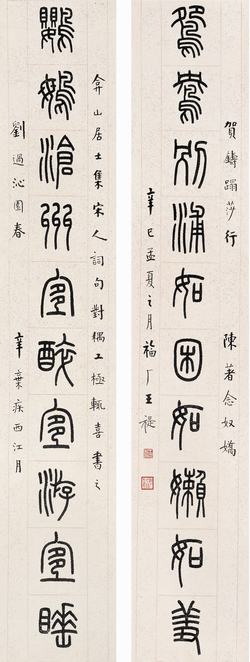 賀鑄蹋莎行 陳著念奴嬌
鴛鴦別浦如困如嬾如羞
辛巳孟夏之月福厂王禔
弇山居士集宋人詞句對耦工極輒喜書之
鸚鵡滄州宜醉宜游宜睡
劉過沁園春 辛棄疾西江月